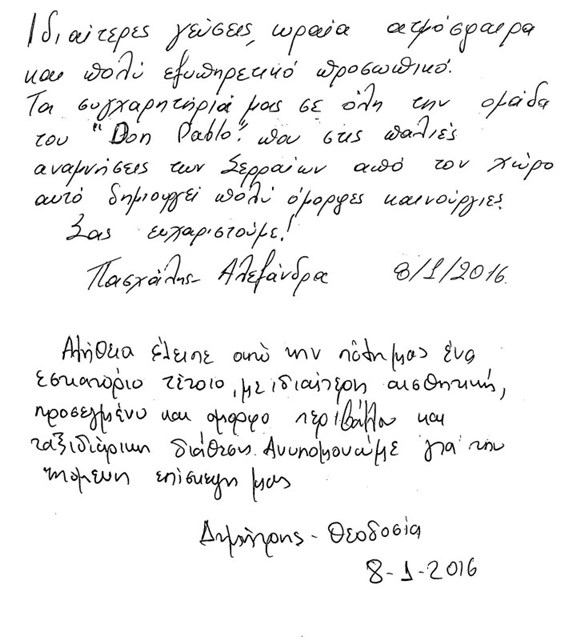 Ιδιαίτερες γεύσεις, ωραία ατμόσφαιρα
και πολύ εξυπηρετικό προσωπικό.
Τα συγχαρητήριά μας σε όλη την ομάδα
του "Don Pablo". που στις παλιές
αναμνήσεις των Σερραίων από τον χώρο
αυτό δημιουργεί πολύ όμορφες καινούργιες.
Σας ευχαριστούμε!
Πασχάλης - Αλεξάνδρα 8/1/2016
έλειπε από την πόλη μας ένα
εστιατόριο τέτοιο, με ιδιαίτερη αισθητική,
προσεγμένο και όμορφο περιβάλλον και
ταξιδιάρικη διάθεση. Ανυπομονούμε για την
επόμενη επίσκεψη μας
Δημήτρης - Θεοδοσία
8-1-2016